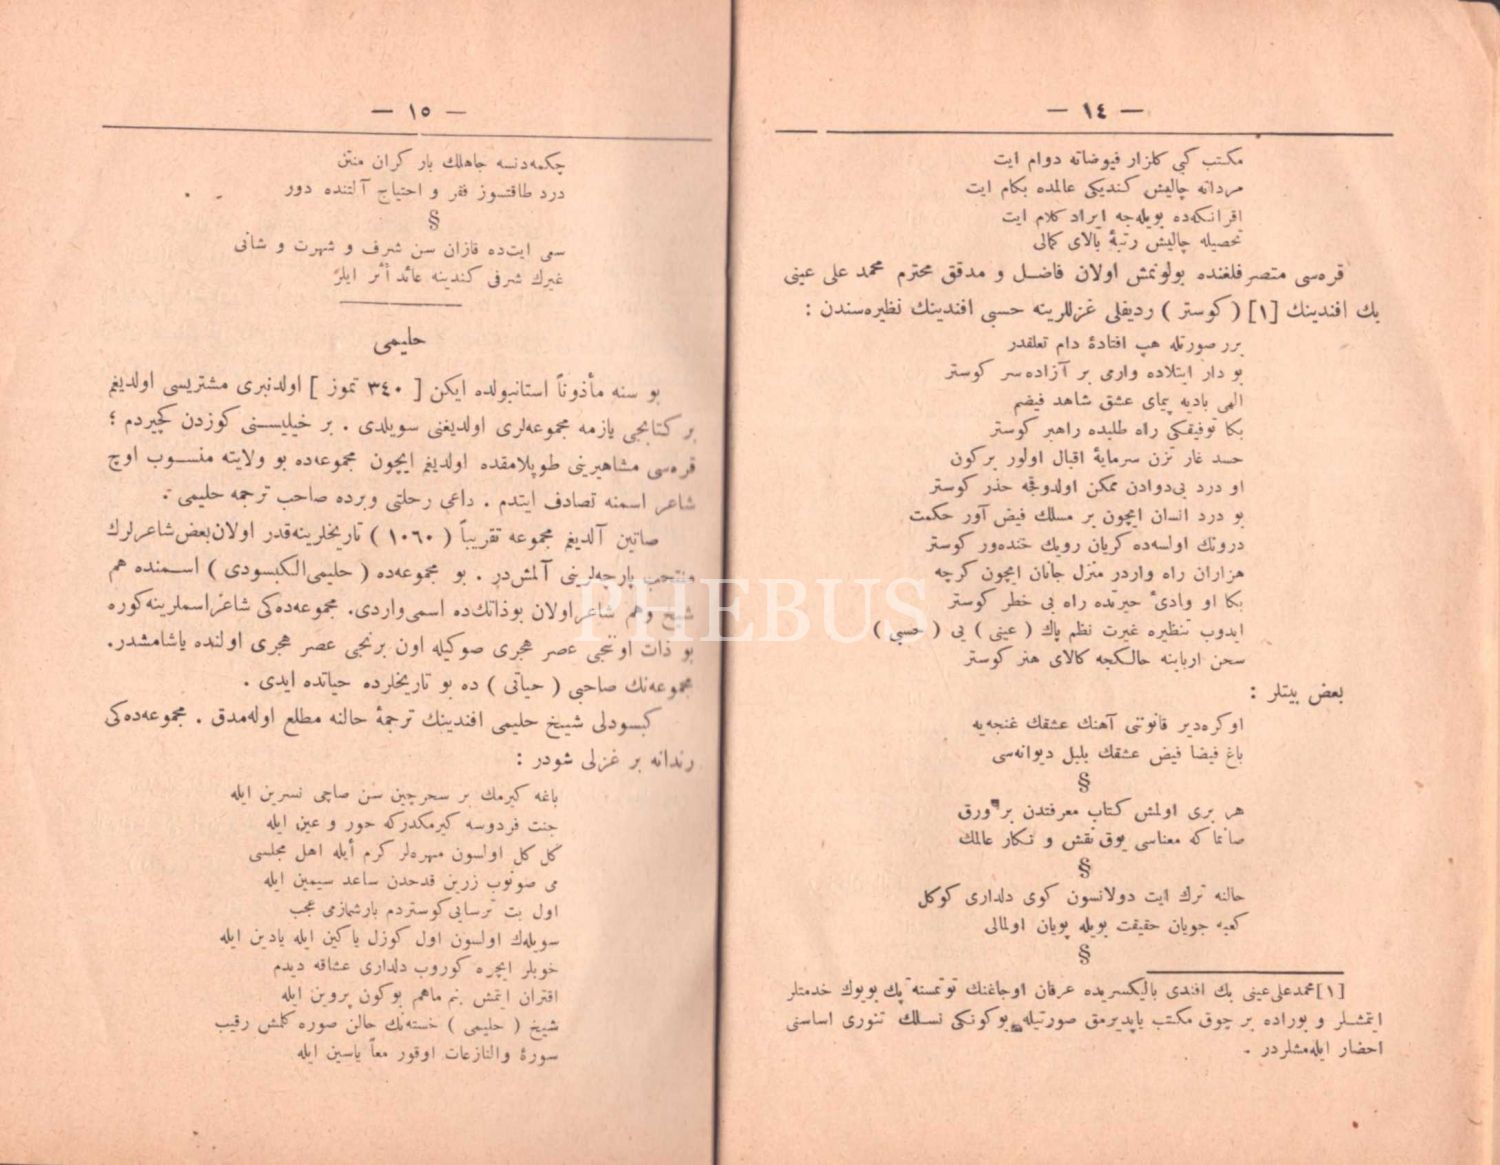 — ١٤ —
مكتب كبى كلزار فيوضاته دوام ايت
مردانه چاليش كنديكى عالمده بكام ايت
اقرانكه‌ده بويله‌جه ايراد كلام ايت
تحصيله چاليش رتبهٔ بالاى كمالى
قره‌سى متصرفلغنده بولونمش اولان فاضل و مدقق محترم محمد على عينى
بك افندينك [١] ( كوستر ) رديفلى غزللرينه حسبى افندينك نظيره‌سندن :
برر صورتله هپ افتادهٔ دام تعلقدر
بو دار ابتلاده وارمى بر آزاده‌سر كوستر
الهى باديه پيماى عشق شاهد فيضم
بكا توفيقكى راه طلبده راهبر كوستر
حسد غار تزن سرمايهٔ اقبال اولور بركون
او درد بى‌دوادن ممكن اولدوقجه حذر كوستر
بو درد انسان ايچون بر مسلك فيض آور حكمت
درونك اولسه‌ده كريان رويك خنده‌ور كوستر
هزاران راه واردر منزل جانان ايچون كرچه
بكا او وادئ حيرتده راه بى خطر كوستر
ايدوب تنظيره غيرت نظم پاك ( عينى ) يى ( حسبى )
سخن اربابنه حالكجه كالاى هنر كوستر
بعض بيتلر :
اوكره‌دير قانوتنى آهنك عشقك غنجه‌يه
باغ فيضا فيض عشقك بلبل ديوانه‌سى
§
هر برى اولمش كتاب معرفتدن بر ورق
صانما كه معناسى يوق نقش و نكار عالمك
§
حالنه ترك ايت دولانسون كوى دلدارى كوكل
كعبه جويان حقيقت بويله پويان اولمالى
§
[١] محمدعلى‌عينى بك افندى باليكسريده عرفان اوجاغنك توتمسنه پك بويوك خدمتلر
ايتمشلر و بوراده بر چوق مكتب ياپديرمق صورتيله بوكونكى نسلك تنورى اساسنى
احضار ايله‌مشلردر .
— ١٥ —
چكمه‌دنسه جاهلك بار كران منتن
درد طاقتسوز فقر و احتياج آلتنده دور
§
سمى ايت‌ده قازان سن شرف و شهرت و شانى
غيرك شرفى كندينه عائد أثر ايلر
حليمى
بو سنه مأذوناً استانبولده ايكن [ ٣٤٠ تموز ] اولدنبرى مشتريسى اولديغم
بر كتابجى يازمه مجموعه‌لرى اولديغنى سويلدى . بر خيليسنى كوزدن كچيردم ؛
قره‌سى مشاهيرينى طوپلامقده اولديغم ايچون مجموعه‌ده بو ولايته منسوب اوچ
شاعر اسمنه تصادف ايتدم . داعى رحلتى وبرده صاحب ترجمه حليمى .
صاتين آلديغم مجموعه تقريباً ( ١٠٦٠ ) تاريخلرينه‌قدر اولان‌بعض‌شاعرلرك
منتخب پارچه‌لرينى آلمش‌در . بو مجموعه‌ده ( حليمى‌الكبسودى ) اسمنده هم
شيخ وهم شاعر اولان بوذاتك‌ده اسمى واردى. مجموعه‌ده‌كى شاعر اسملرينه‌كوره
بو ذات اوننجى عصر هجرى صوكيله اون برنجى عصر هجرى اولنده ياشامشدر.
مجموعه‌نك صاحبى ( حياتى ) ده بو تاريخلرده حياتده ايدى .
كبسودلى شيخ حليمى افندينك ترجمهٔ حالنه مطلع اوله‌مدق . مجموعه‌ده‌كى
رندانه بر غزلى شودر :
باغه كيرمك بر سحرچين سن صاچى نسرين ايله
جنت فردوسه كيرمكدركه حور و عين ايله
كل كل اولسون مهره‌لر كرم أيله اهل مجلسى
مى صونوب زرين قدحدن ساعد سيمين ايله
اول بت ترسايى‌كوستردم بارشمازمى عجب
سويله‌ك اولسون اول كوزل ياكين ايله يادين ايله
خوبلر ايچره كوروب دلدارى عشاقه ديدم
اقتران ايتمش بنم ماهم بوكون پروين ايله
شيخ ( حليمى ) خسته‌نك حالن صوره كلمش رقيب
سورهٔ والنازعات اوقور معاً ياسين ايله
PHEBUS